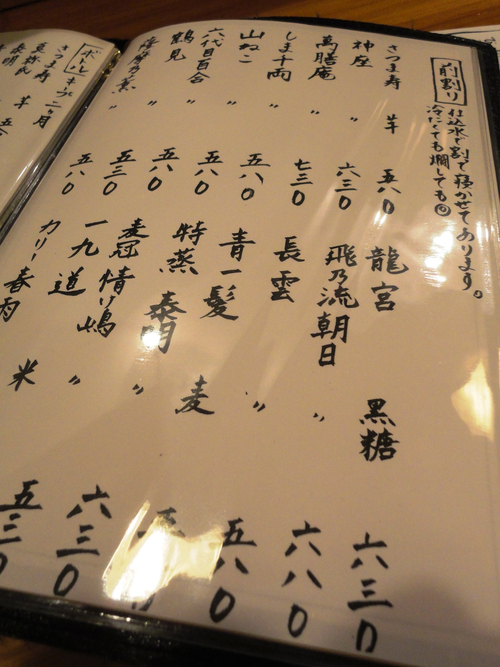 前割り
仕込水で割って寝かせてあります。
冷にても燗しても◎
さつま寿 芋 五八〇
神座 〃 六三〇
萬膳庵 〃 七三〇
しま千両 〃 五八〇
山ねこ 〃 五八〇
六代目百合 〃 五八〇
鶴見 〃 五三〇
薩摩の薫 〃 五八〇
龍宮 黒糖 六三〇
飛乃流朝日 〃 六八〇
長雲 〃 五八〇
青一髪 麦
特蒸 泰明 〃 六三〇
麦冠 情け嶋 〃 五三〇
一九道 米
カリー春雨
ボトルキープ二ヶ月
さつま寿 芋 五合
泰明